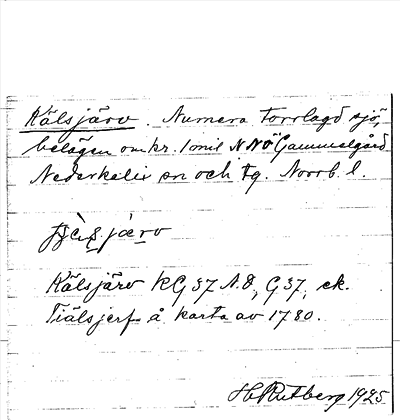 Kälsjärv. Numera torrlagd sjö,
belägen omkr. 1 mil NNÖ Gammelgård
Nederkalix sn och tg. Norrb. l.
Kälsjärv KG 37 N.Ö, G 37, ek.
Tiälsjerf å karta av 1780.
H Rutberg 1925.